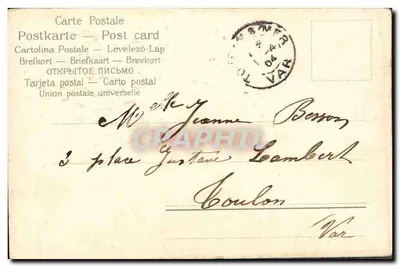 Carte Postale
Postkarte — Post card
Cartolina Postale — Levelező-Lap
Brefkort — Briefkaart — Brevkort
ОТКРЫТОЕ ПИСЬМО
Tarjeta postal — Carto postal
Union postale universelle
S MER
4
04
VAR
Mlle Jeanne Besson
3 place Gustave Lambert
Toulon
Var